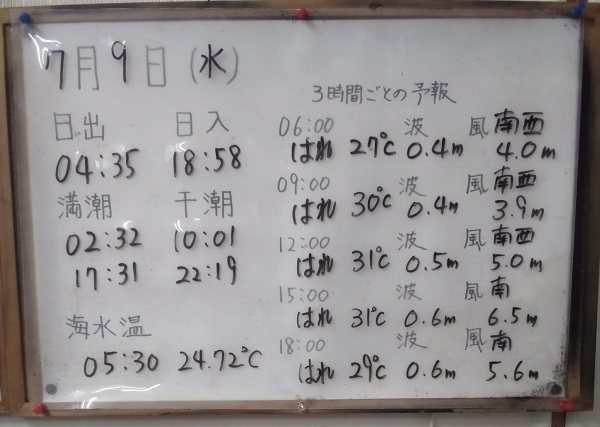 7月9日(水)
日出 日入
04:35 18:58
満潮 干潮
02:32 10:01
17:31 22:19
海水温
05:30 24.72℃
3時間ごとの予報
06:00 波 風 南西
はれ 27℃ 0.4m 4.0m
09:00 波 風 南西
はれ 30℃ 0.4m 3.9m
12:00 波 風 南西
はれ 31℃ 0.5m 5.0m
15:00 波 風 南
はれ 31℃ 0.6m 6.5m
18:00 波 風 南
はれ 29℃ 0.6m 5.6m